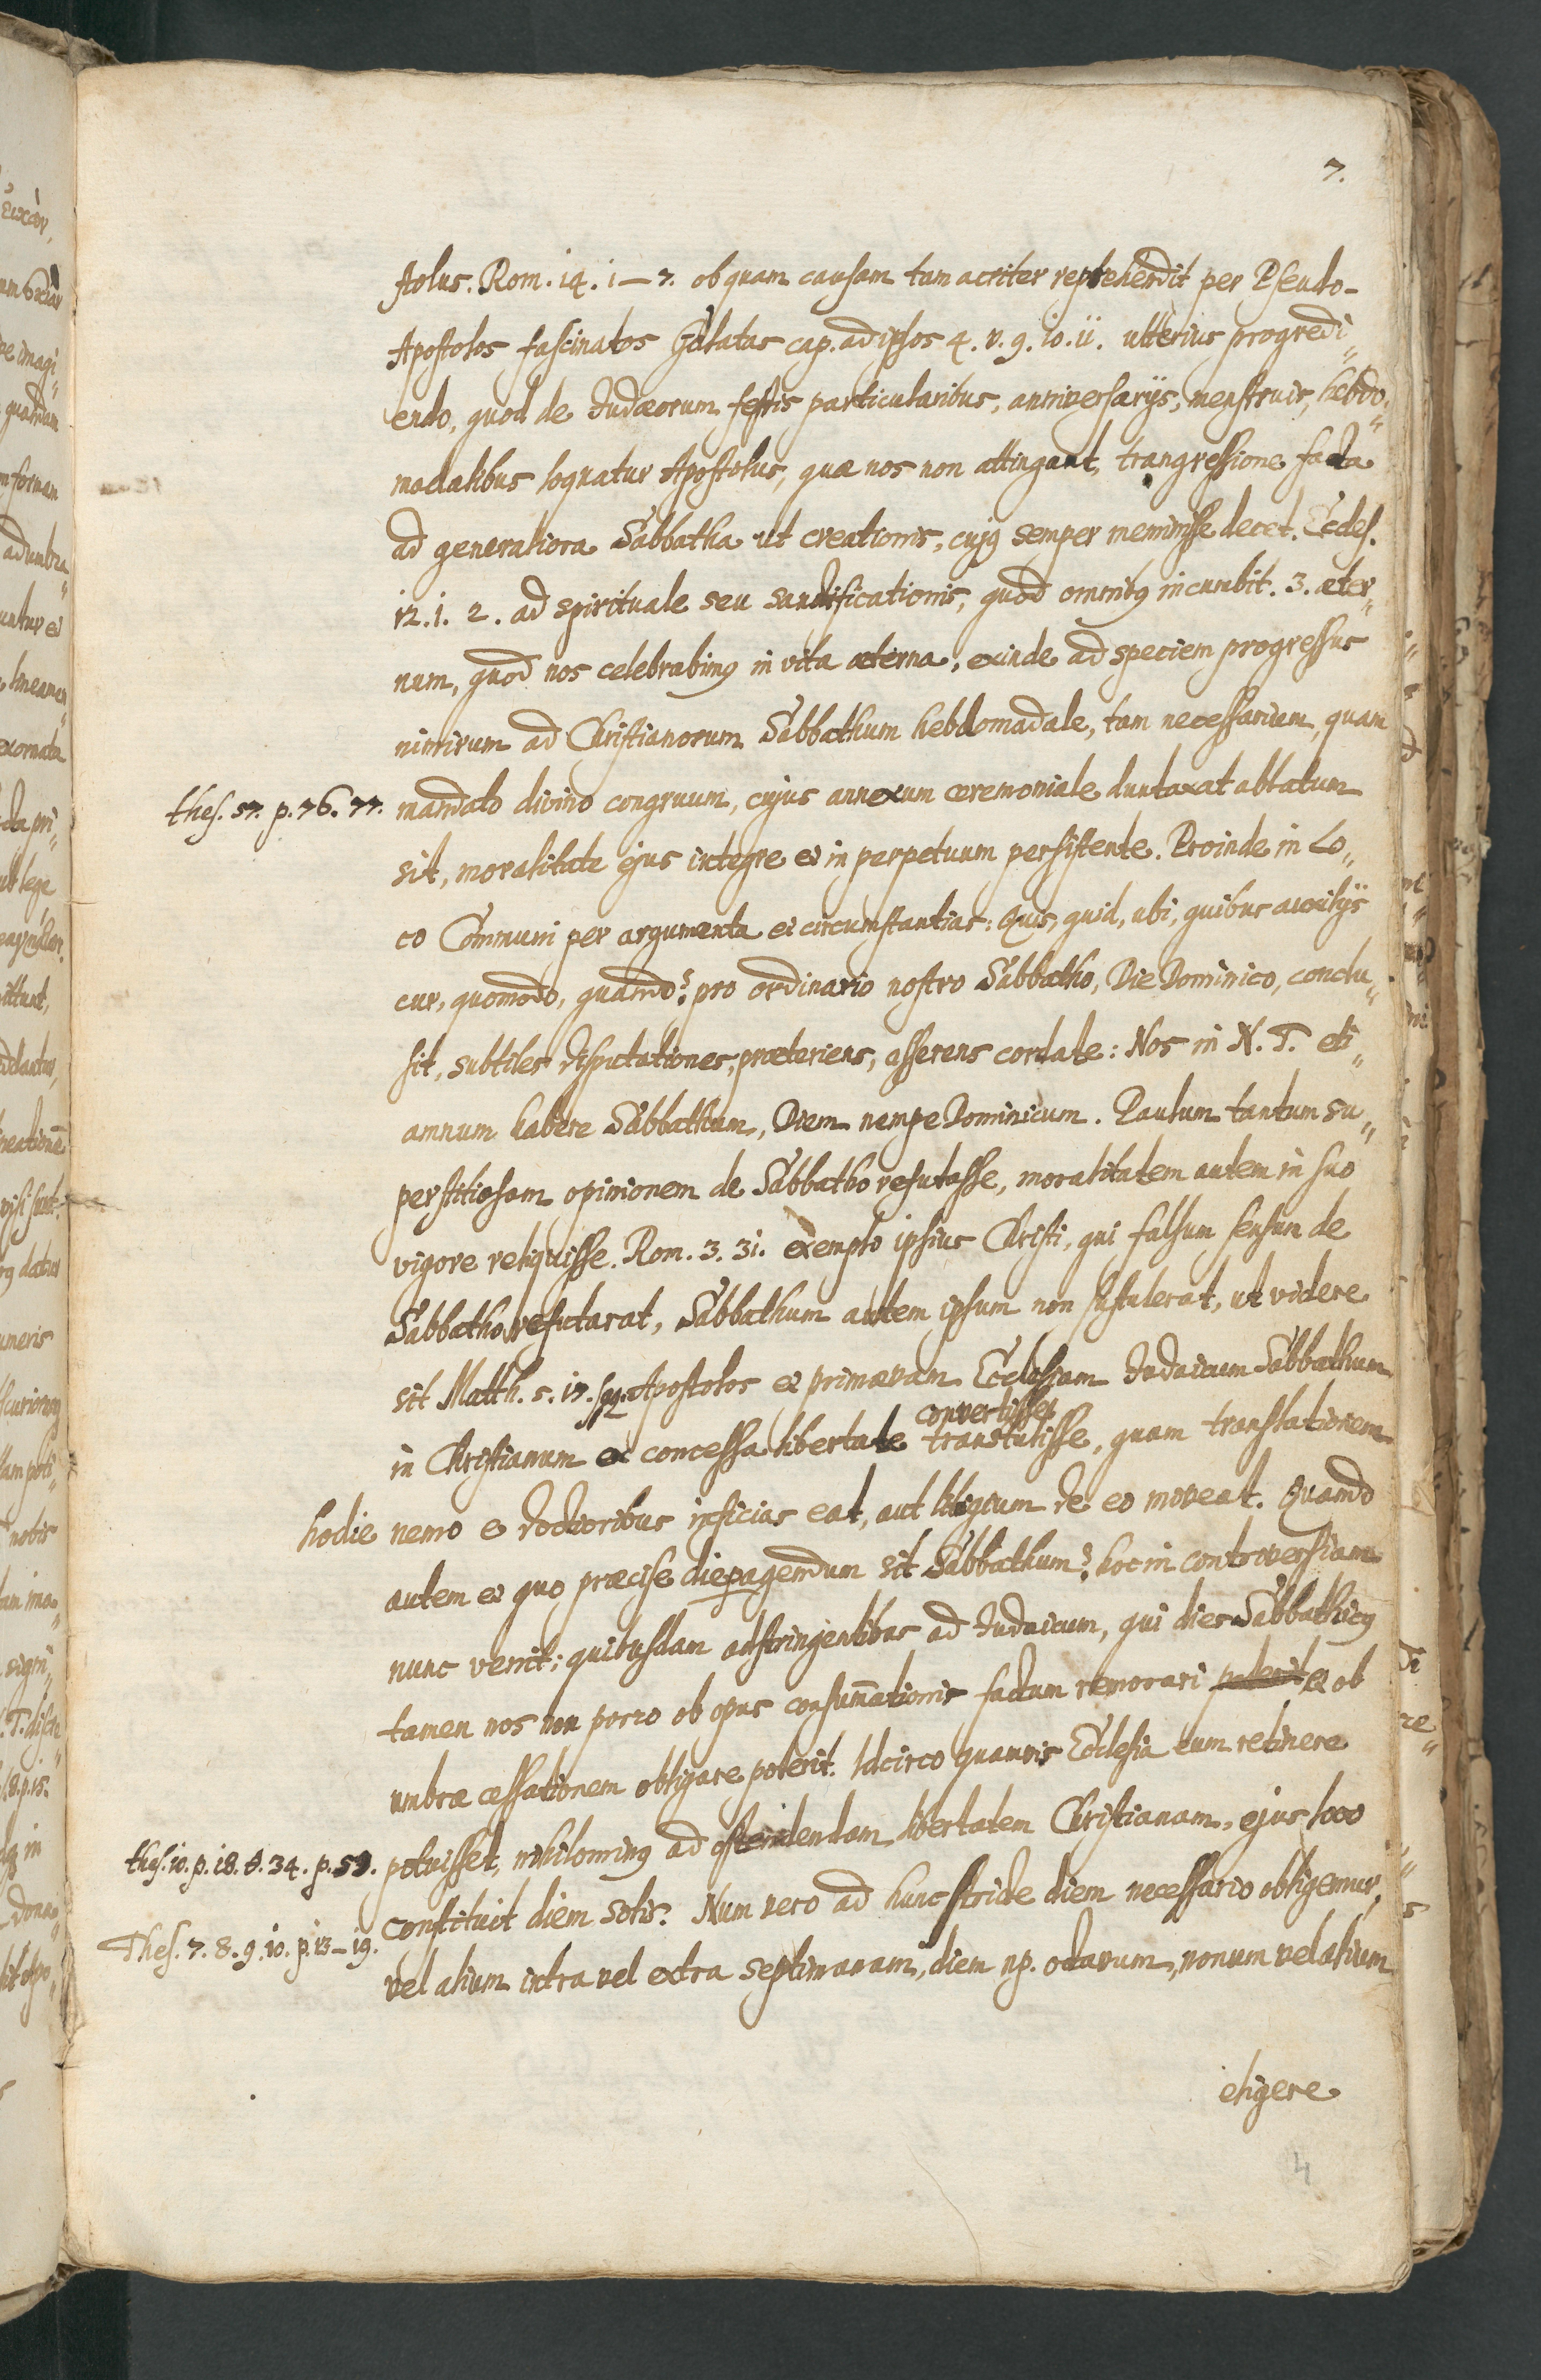 7.
stolus. Rom. 14. 1 – 7. ob quam causam tam acriter reprehendit per Pseudo-
Apostolos fascinatos Galatas cap. ad ipsos 4. v. 9. 10. 11. ulterius progredi„
endo, quod de Judæorum festis particularibus, anniversarijs, menstruis, hebdo„
madalibus loquatur Apostolus, quæ nos non attingant, trangressione facta
ad generaliora Sabbatha ut creationis, cujq semper meminisse decet. Eccles.
12. 1. 2. ad spirituale seu sanctificationis, quod omnibq incumbit. 3. æter„
num, quod nos celebrabimq in vita æterna, exinde ad speciem progressus
nimirum ad Christianorum Sabbathum hebdomadale, tam necessarium, quam
thes. 57. p. 76. 77. mandato divino congruum, cujus annexum ceremoniale duntaxat ablatum
sit, moralitate ejus integre et in perpetuum persistente. Proinde in Lo„
co Communi per argumenta et circumstantias: Quis, quid, ubi, quibus auxilijs
cur, quomodo, quando? pro ordinario nostro Sabbatho, Die Dominico, conclu„
sit, subtiles disputationes, præteriens, asserens cordate: Nos in N. T. eti„
amnum habere Sabbathum, Diem nempe Dominicum. Paulum tantum su„
perstitiosam opinionem de Sabbatho refutasse, moralitatem autem in suo
vigore reliquisse. Rom. 3. 31. exemplo ipsius Christi, qui falsum sensum de
Sabbatho refutarat, Sabbathum autem ipsum non sustulerat, ut videre
sit Matth. 5. 17. sqq. Apostolos et primævam Ecclesiam Judaicum Sabbathum
convertisse
in Christianum ex concessa libertate transtulisse, quam translationem
hodie nemo e doctioribus inficias eat, aut litigium de eo moveat. Quando
autem et quo præcise die pagendum sit Sabbathum? hoc in controversiam
nunc venit; quibusdam adstringentibus ad Judaicum, qui dies Sabbathicq
tamen nos non porro ob opus consumationis factum remorari poterit et ob
umbræ cessationem obligare poterit. Idcirco quamvis Ecclesia eum retinere
thes. 10. p. 18. §. 34. p. 59. potuisset, nihilominq ad ostendendam libertatem Christianam, ejus loco
constituit diem solis. Num vero ad hunc stricte diem necessario obligemur,
Thes. 7. 8. 9. 10. p. 13 – 19. vel alium intra vel extra septimanam, diem np. octavum, nonum vel alium
eligere
4